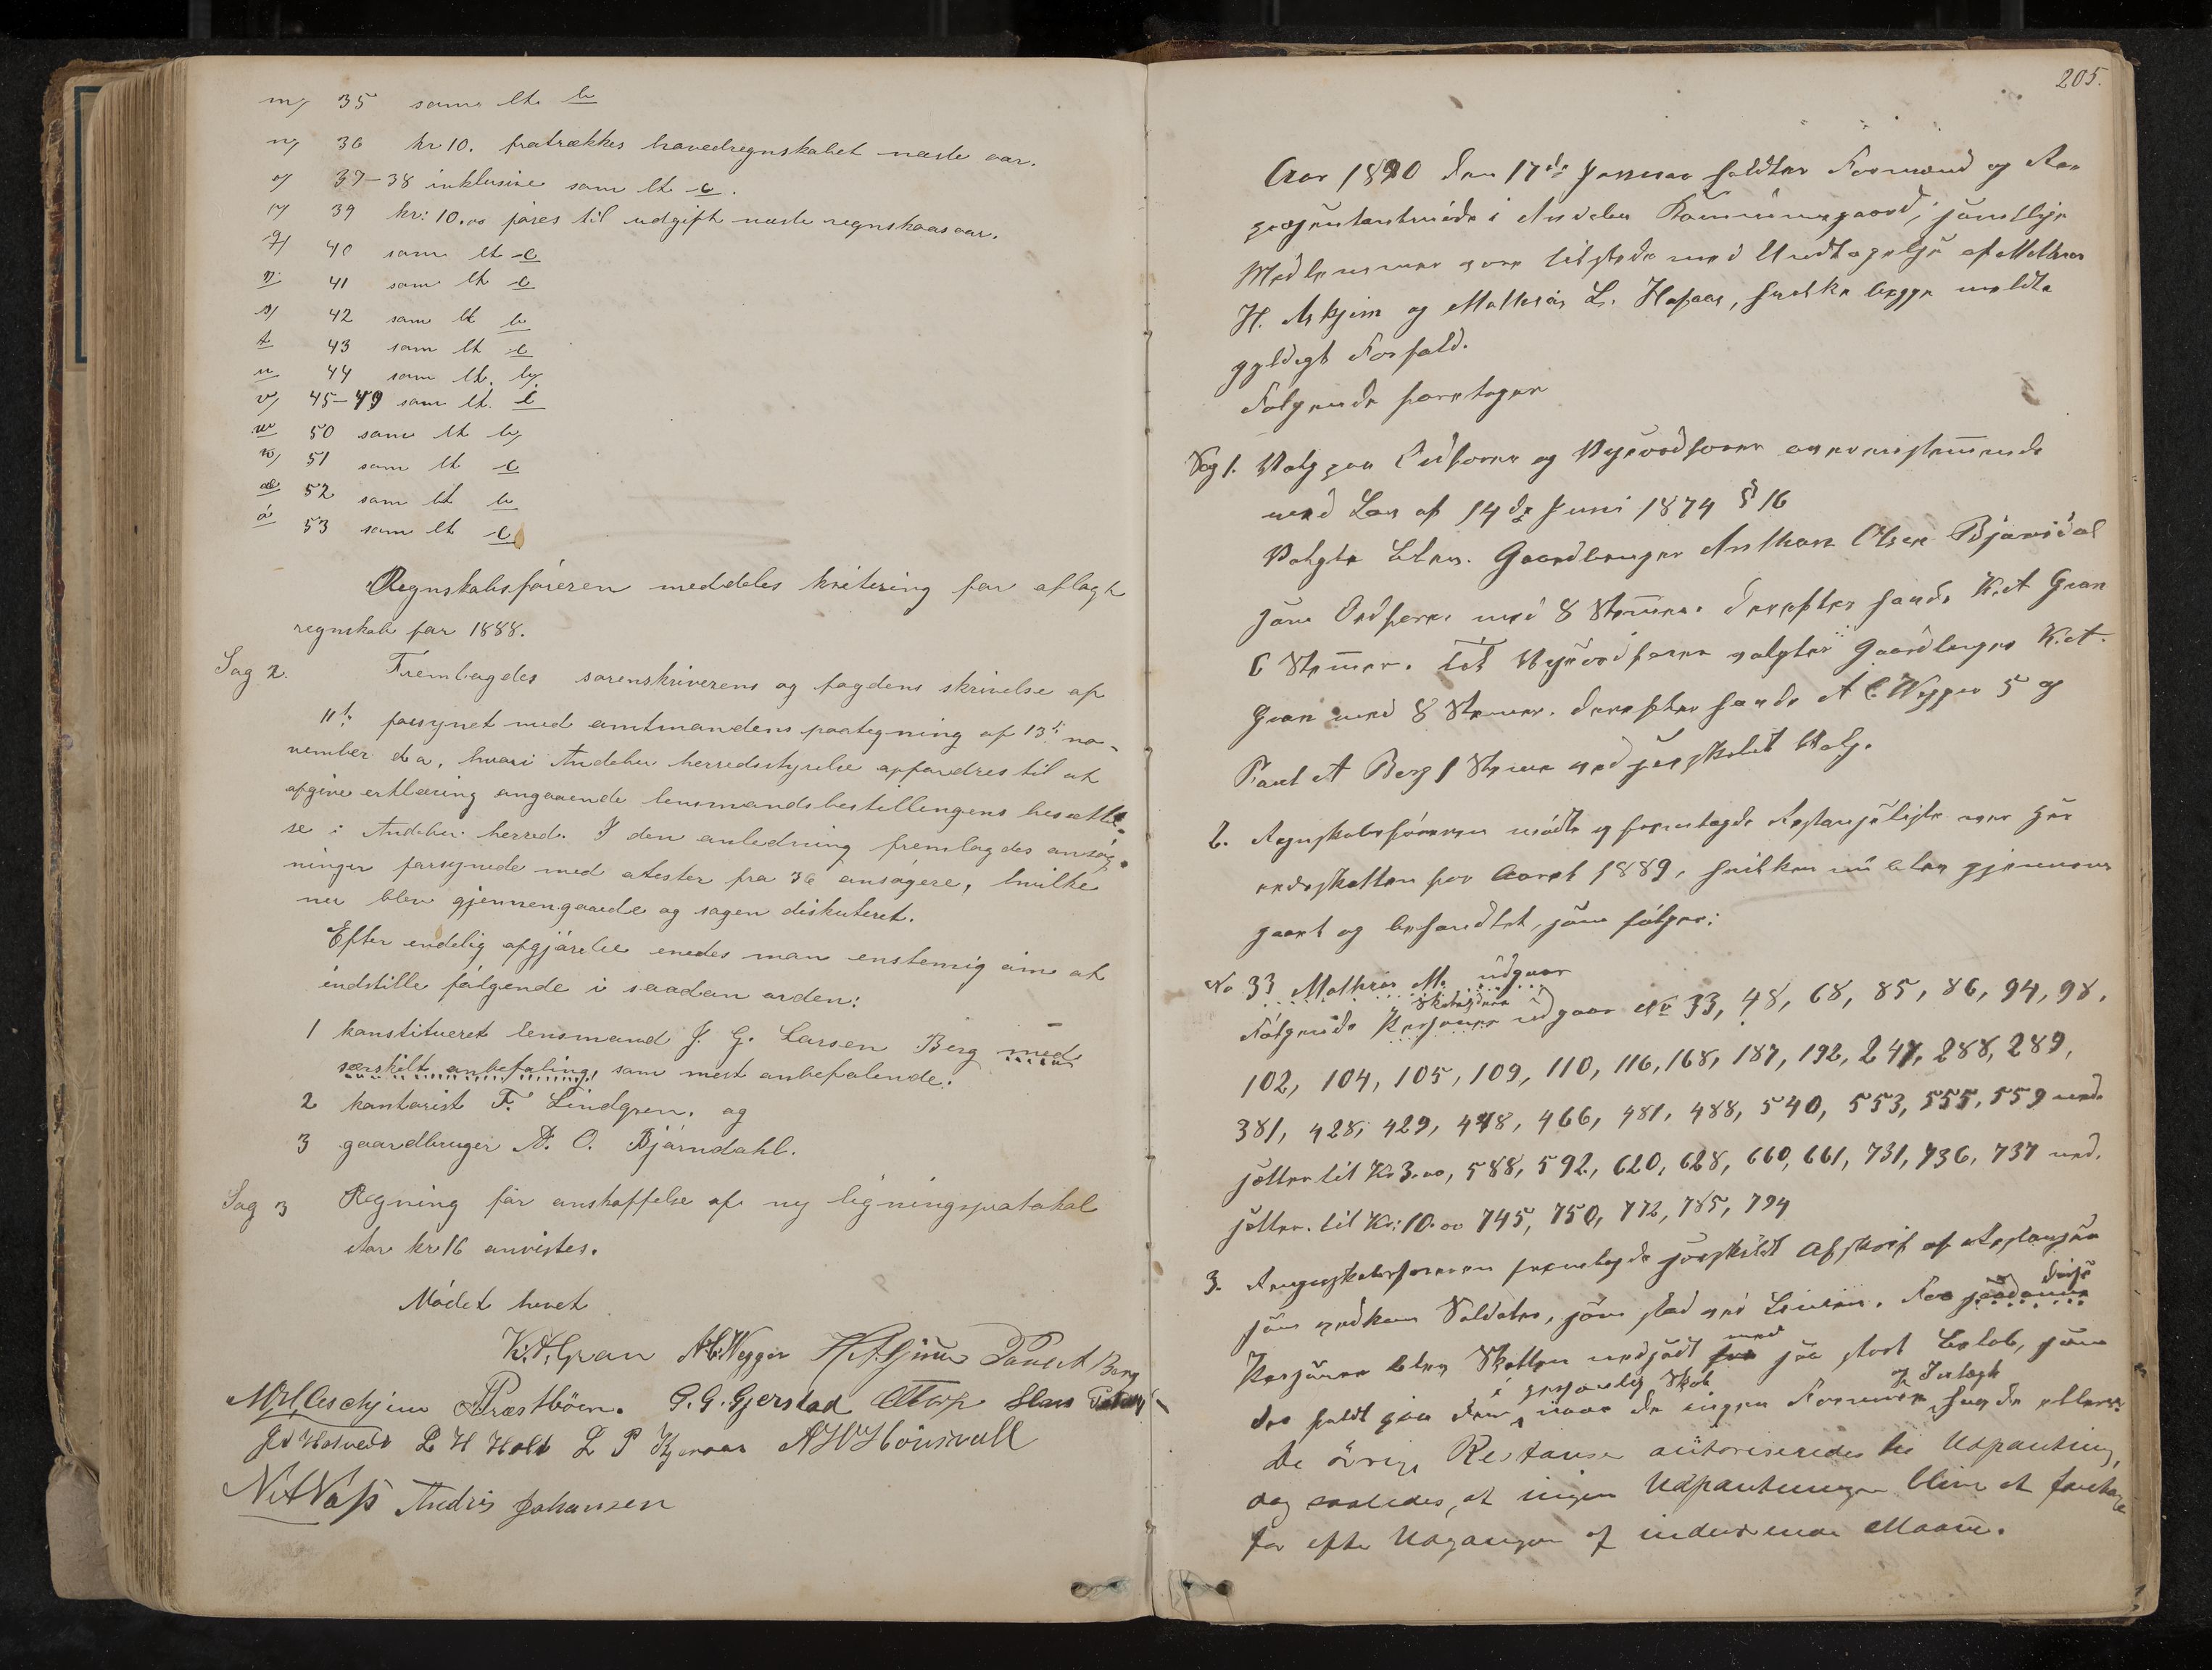 m) 35 som lt. b
n) 36 kr 10. fratrækkes hovedregnskabet næste aar.
o) 37–38 inklusive som lt c.
p) 39 kr: 10.00 føres til udgift næste regnskabsaar.
q) 40 som lt c
r 41 som lt c
s) 42 som lt b
t 43 som lt c
u 44 som lt. b)
v) 45–49 som lt. c
w 50 som lt b)
x) 51 som lt c
æ 52 som lt b
ø 53 som lt c
Regnskabsføreren meddeles kvitering for aflagt
regnskab for 1888.
Sag 2. Fremlagdes sorenskriverens og fogdens skrivelse af
11te forsynet med amtmandens paategning af 13de no-
vember d. a, hvori Andebu herredsstyrelse opfordres til at
afgive erklæring angaaende lensmandsbestillingens besættel-
se i Andebu herred. I den anledning fremlagdes ansøg-
ninger forsynede med atester fra 36 ansøgere, hvilke
nu blev gjennemgaaede og sagen diskuteret.
Efter endelig afgjørelse enedes man enstemig om at
indstille følgende i saadan orden:
1 konstitueret lensmand J. G. Larsen Berg med
særskilt anbefaling, som mest anbefalende.
2 kontorist F. Lindgren. og
3 gaardbruger A. O. Bjørndahl.
Sag 3 Regning for anskaffelse af ny ligningsprotokol
stor kr 16 anvistes.
Mødet hevet
K. A. Gran A C Wegger H. Askjem Paul A Berg
M H Aschjem Præstbøen. G. G. Gjerstad Hans
Hotvedt L H Holt L P A W Hønsvall
N A Nøss Andris Johansen
205.
Aar 1890 den 17de Januar holdtes Formænd og Re-
præsentantmøde i Andebu Kommunegaard; samtlige
Medlemmer vare tilstede med Undtagelse af
H. Askjem og Mathias L. , hvilke begge meldte
gyldigt Forfald.
Følgende foretoges
Sag 1. Valg paa Ordfører og Viseordfører overensstemmende
med Lov af 14de Juni 1874 § 16
Valgte blev. Gaardbruger Anthon Olsen Bjørndal
som Ordfører med 8 Stemmer. derefter havde K. A Gran
6 Stemmer. Til Viseordfører valgtes Gaardbruger K. A.
Gran med 8 Stemmer. derefter havde A C Wegger 5 og
Paul A Berg 1 Stemme ved særskilt Valg.
2. Regnskabsføreren mødte og fremlagde Restanseliste over Her-
redsskatten for Aaret 1889, hvilken nu blev gjennem-
gaaet og behandlet, som følger:
No 33 Mathias M. udgaar
Skatydere
Følgende Personer udgaar No 33, 48, 68, 85, 86, 94, 98,
102, 104, 105, 109, 110, 116, 168, 187, 192, 247, 288, 289,
381, 428, 429, 448, 466, 481, 488, 540, 553, 555, 559 ned-
sættes til Kr 3.00, 588, 592, 620, 628, 660, 661, 731, 736, 737 ned-
sættes til Kr: 10.00 745, 750, 772, 785, 794
3. Regnskabsføreren fremlagde særskilt Afskrift af Restansen
som vedkom Soldater, som stod ved Linien. For saadanne disse
Personer blev Skatten nedsadt med saa stort Beløb, som
i personlig Skat og Indtægt
der faldt paa dem, naar de ingen Formue havde ellers.
De øvrige Restanser autoriseredes til Udpantning,
dog saaledes, at ingen Udpantninger bliver at foretage
før efter Udgangen af indeværende Maaned.